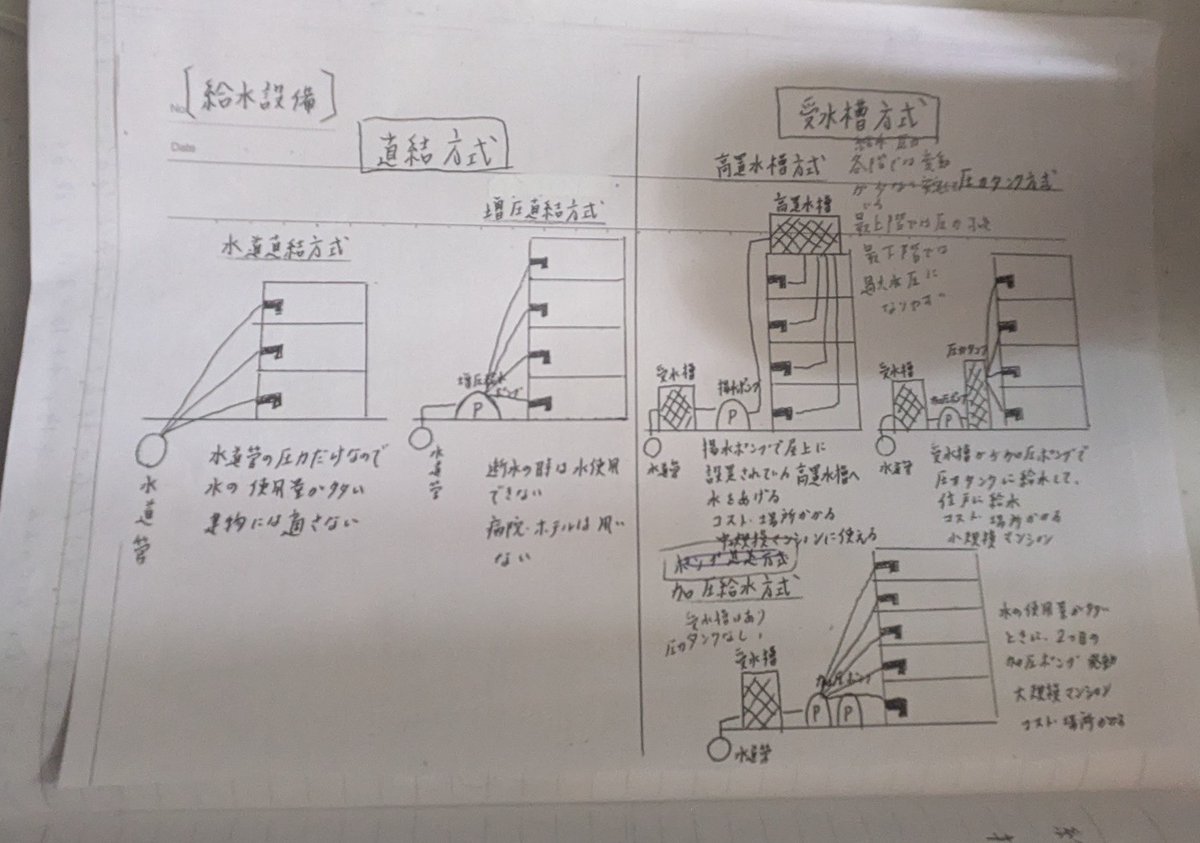 No.
[給水設備]
Date
直結方式
水道直結方式
水道管
水道管の圧力だけなので
水の使用量が多い
建物には適さない
増圧直結方式
増圧給水
ポンプ
P
水道管
断水の時は水使用
できない
病院・ホテルは用い
ない
受水槽方式
高置水槽方式
各階では変動
が少ない
最上階では圧力不足
最下階では
過大水圧に
なりやすい
高置水槽
受水槽
揚水ポンプ
P
水道管
揚水ポンプで屋上に
設置されている高置水槽へ
水をあげる
コスト・場所かかる
中規模マンションに使える
圧力タンク方式
圧力タンク
受水槽
加圧ポンプ
P
水道管
受水槽から加圧ポンプで
圧力タンクに給水して、
住戸に給水
コスト・場所かかる
小規模マンション
ポンプ直送方式
加圧給水方式
受水槽はあり
圧力タンクなし
受水槽
加圧ポンプ
P P
水道管
水の使用量が多い
ときに、2つ目の
加圧ポンプ発動
大規模マンション
コスト・場所かかる